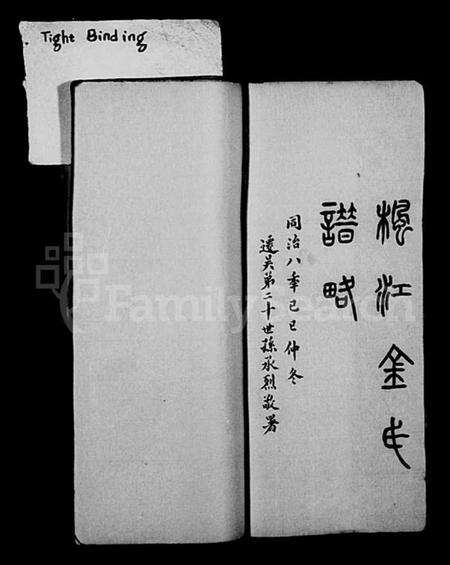 Tight Binding
楓江金氏
譜略
同治八年己巳仲冬
遷吳第二十世孫承烈敬署
FamilySearch